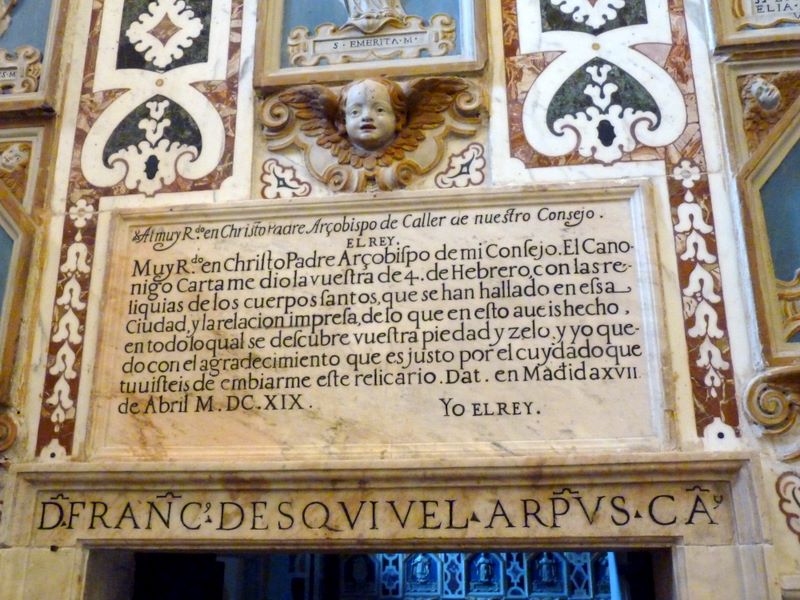 S EMERITA M
ELIA
Al muy R.do en Christo Padre Arçobispo de Caller de nuestro Consejo.
EL REY.
Muy R.do en Christo Padre Arçobispo de mi Consejo. El Cano-
nigo Carta me dio la vuestra de 4. de Hebrero, con las re-
liquias de los cuerpos santos, que se han hallado en essa
Ciudad, y la relacion impresa, de lo que en esto aueis hecho,
en todo lo qual se descubre vuestra piedad y zelo. y yo que-
do con el agradecimiento que es justo por el cuydado que
tuuisteis de embiarme este relicario. Dat. en Madid a xvii
de Abril M. DC. XIX. Yo EL REY.
D. FRANC.o DESQVIVEL ARPVS CA